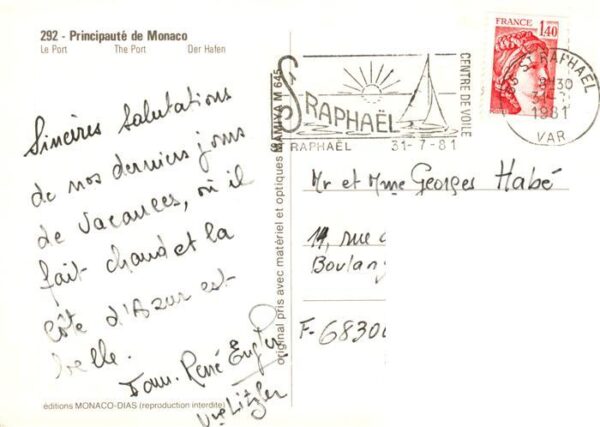 292 - Principauté de Monaco
Le Port The Port Der Hafen
Sincères Salutations
de nos derniers jours
de Vacances, où il
fait chaud et la
côte d'Azur est
belle.
Fam. René
éditions MONACO-DIAS (reproduction interdite)
original pris avec matériel et optiques MAMIYA M 645
St RAPHAËL
CENTRE DE VOILE
RAPHAËL 31-7-81
FRANCE
1,40
83 ST RAPHAEL
1981
VAR
Mr et Mme Georges Habé
rue
Boulan
F-6830